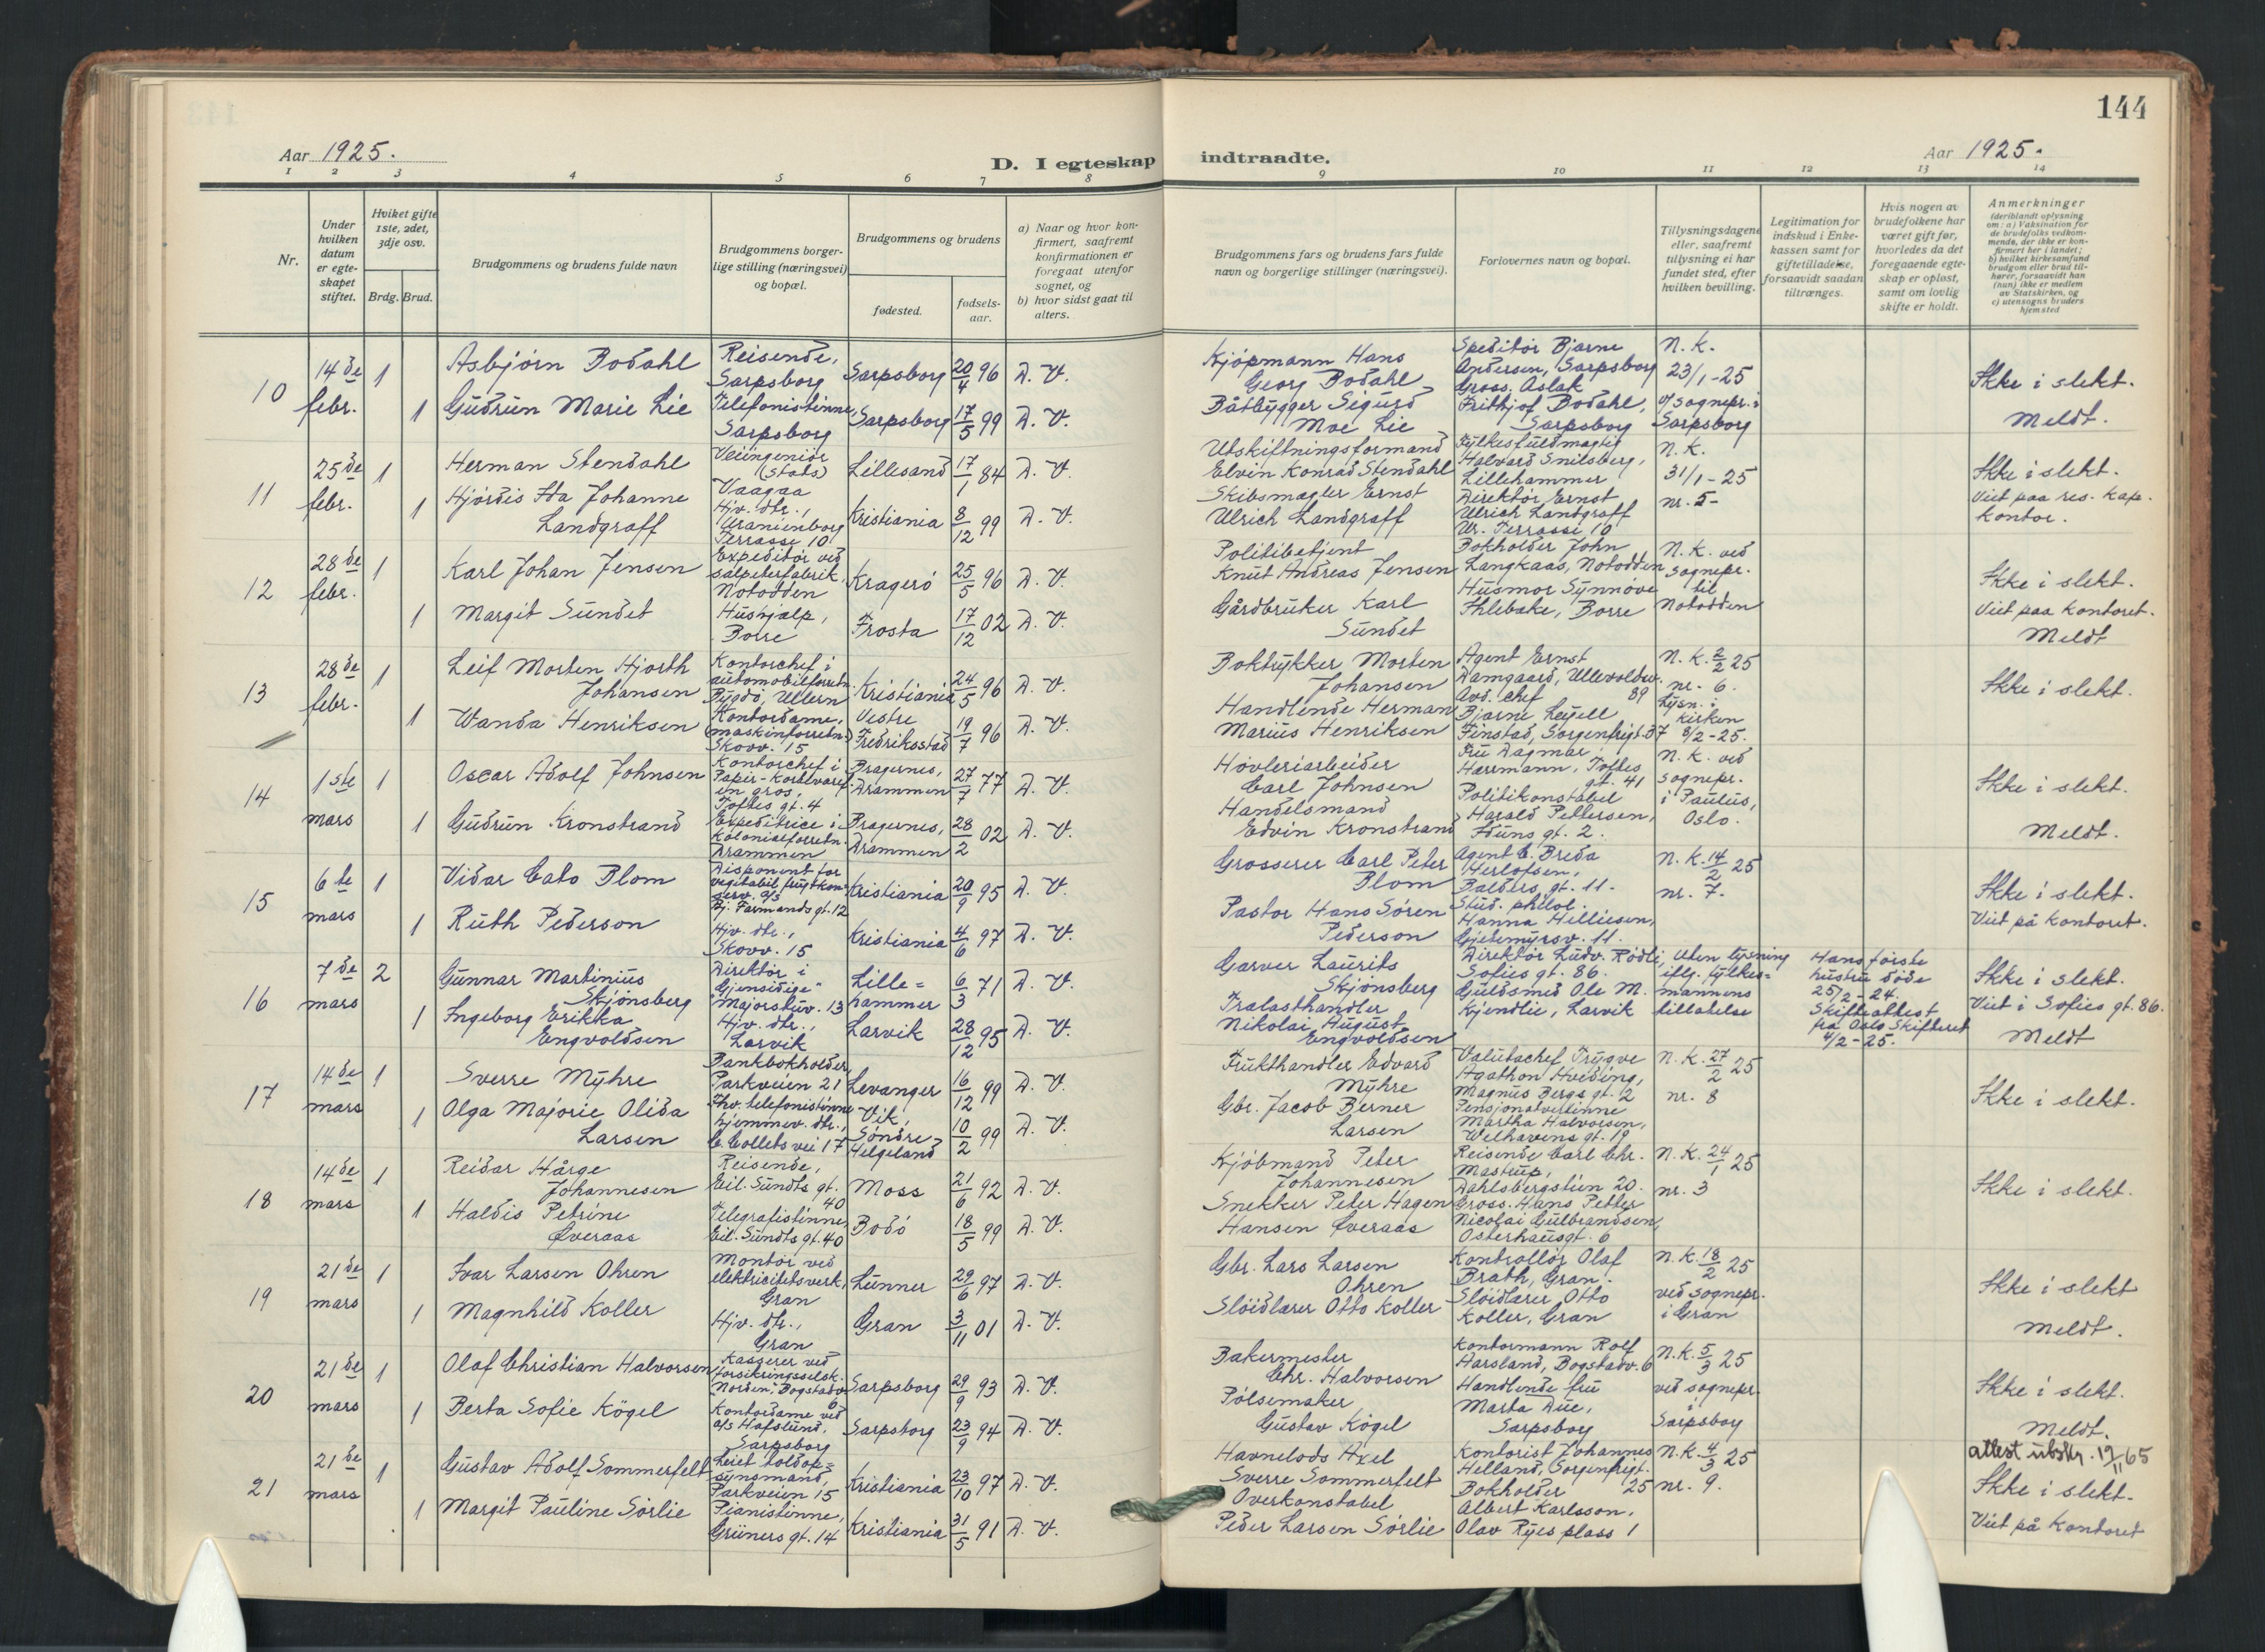 144
Aar 1925.
D. I egteskap indtraadte.
Aar 1925.
1 2 3 4 5 6 7 8 9 10 11 12 13 14
Nr.
Under hvilken datum er egteskapet stiftet.
Hviket gifte 1ste, 2det, 3dje osv.
Brdg. Brud.
Brudgommens og brudens fulde navn
Brudgommens borgerlige stilling (næringsvei) og bopæl.
Brudgommens og brudens
fødested.
fødselsaar.
a) Naar og hvor konfirmert, saafremt konfirmationen er foregaat utenfor sognet, og
b) hvor sidst gaat til alters.
Brudgommens fars og brudens fars fulde navn og borgerlige stillinger (næringsvei).
Forlovernes navn og bopæl.
Tillysningsdagene eller, saafremt tillysning ei har fundet sted, efter hvilken bevilling.
Legitimation for indskud i Enkekassen samt for giftetilladelse, forsaavidt saadan tiltrænges.
Hvis nogen av brudefolkene har været gift før, hvorledes da det foregaaende egteskap er opløst, samt om lovlig skifte er holdt.
Anmerkninger
(deriblandt oplysning om: a) Vaksination for de brudefolks vedkommende, der ikke er konfirmert her i landet; b) hvilket kirkesamfund brudgom eller brud tilhører, forsaavidt han (hun) ikke er medlem av Statskirken, og c) utensogns bruders hjemsted
10
14de febr.
1
Asbjørn Bodahl
Reisende, Sarpsborg
Sarpsborg
20/4 96
D. V.
Kjøpmann Hans Georg Bodahl
Speditør Bjarne Andersen, Sarpsborg
N. K. 23/1-25
Ikke i slekt.
1
Gudrun Marie Lie
Telefonistinne, Sarpsborg
Sarpsborg
17/5 99
D. V.
Båtbygger Sigurd Moe Lie
Gross. Aslak Frithjof Bodahl, Sarpsborg
v/ sognepr. i Sarpsborg
Meldt.
11
25de febr.
1
Herman Stendahl
Veiingeniør (stats) Vaagaa
Lillesand
17/1 84
D. V.
Utskiftningsformand Elvin Konrad Stendahl
Fylkesfuldmægtig Halvard Snilsberg, Lillehammer
N. K. 31/1-25
Ikke i slekt.
1
Hjørdis Ida Johanne Landgraff
Hjv. dtr., Uranienborg Terrasse 10
Kristiania
8/12 99
D. V.
Skibsmægler Ernst Ulrich Landgraff
Direktør Ernst Ulrich Landgraff Ur. Terrasse 10
nr. 5
Viet paa res. kap. kontor.
12
28de febr.
1
Karl Johan Jensen
Expeditør ved salpeterfabrik, Notodden
Kragerø
25/5 96
D. V.
Politibetjent Knut Andreas Jensen
Bokholder John Langkaas, Notodden
N. K. ved sognepr. til Notodden
Ikke i slekt.
1
Margit Sundet
Hushjælp, Borre
Frosta
17/12 02
D. V.
Gårdbruker Karl Sundet
Husmor Synnøve Ihlebake, Borre
Viet paa kontoret.
Meldt
13
28de febr.
1
Leif Morten Hjorth Johansen
Kontorchef i automobilforretn. Bygdø, Ullern
Kristiania
24/5 96
D. V.
Boktrykker Morten Johansen
Agent Ernst Damgaard, Ullevoldsv. 89
N. K. 2/2 25 nr. 6.
Ikke i slekt.
1
Wanda Henriksen
Kontordame, (maskinforretn.) Skovv. 15
Vestre Fredriksstad
19/7 96
D. V.
Handlende Herman Marius Henriksen
Avd. chef Bjarne Leyell Finstad, Sorgenfrigt 37
Lysn. i kirken 8/2-25.
14
1ste mars
1
Oscar Adolf Johnsen
Kontorchef i Papir- Kortevaref. en gros, Toftes gt. 4
Bragernes, Drammen
27/7 77
D. V.
Høvleriarbeider Carl Johnsen
Fru Dagmar Harrmann, Toftes gt. 41
N. K. ved sognepr. i Paulus, Oslo.
Ikke i slekt.
1
Gudrun Kronstrand
Expeditrice i kolonialforretn. Drammen
Bragernes, Drammen
28/2 02
D. V.
Handelsmand Edvin Kronstrand
Politikonstabel Harald Pettersen, Iduns gt. 2.
Meldt.
15
6te mars
1
Vidar Cato Blom
Disponent for vegetabil frugtkonserv. a/s Bj. Farmands gt. 12
Kristiania
20/9 95
D. V.
Grosserer Carl Peter Blom
Agent C. Breda Herlofsen, Balders gt. 11.
N. K. 14/2 25 nr. 7.
Ikke i slekt.
1
Ruth Pederson
Hjv. dtr., Skovv. 15
Kristiania
4/6 97
D. V.
Pastor Hans Søren Pederson
Stud. philol. Hanna Helliesen, Gjetemyrsv. 11.
Viet på kontoret.
16
7de mars
2
Gunnar Martinius Skjønsberg
Direktør i "Gjensidige" Majorstuv. 13
Lillehammer
6/3 71
D. V.
Garver Laurits Skjønsberg
Direktør Ludv. Rødli, Sofies gt. 86.
Uten lysning iflg. fylkesmannens tillatelse
Hans første hustru døde 25/2-24. Skifteattest fra Oslo Skifteret 4/2-25.
Ikke i slekt.
1
Ingeborg Erikka Engvoldsen
Hjv. dtr., Larvik
Larvik
28/12 95
D. V.
Tralasthandler Nikolai August Engvoldsen
Guldsmed Ole M. Kjendlie, Larvik
Viet i Sofies gt. 86.
Meldt
17
14de mars
1
Sverre Myhre
Bankbokholder, Parkveien 21
Levanger
16/12 99
D. V.
Frukthandler Edvard Myhre
Valutachef Trygve Agathon Hviding, Magnus Bergs gt. 2
N. K. 27/2 25 nr. 8
Ikke i slekt.
1
Olga Majorie Olida Larsen
Fhv. telefonistinne hjemmev. dtr., C. Collets vei 17
Vik, Søndre Helgeland
10/2 99
D. V.
Gbr. Jacob Berner Larsen
Pensjonatvertinne Martha Halvorsen, Welhavens gt. 19
18
14de mars
1
Reidar Hårge Johannesen
Reisende, Eil. Sundts gt. 40
Moss
21/6 92
D. V.
Kjøbmand Peter Johannesen
Reisende Carl Chr. Mastrup, Dahlsbergstien 20.
N. K. 24/1 25 nr. 3
Ikke i slekt.
1
Haldis Petrine Øveraas
Telegrafistinne, Eil. Sundts gt. 40
Bodø
18/5 99
D. V.
Snekker Peter Hagen Hansen Øveraas
Gross. Hans Petter Nicolai Gulbrandsen, Osterhausgt. 6
19
21de mars
1
Ivar Larsen Ohren
Montør ved elektricitetsverk, Gran
Lunner
29/6 97
D. V.
Gbr. Lars Larsen Ohren
Kontrollør Olaf Brath, Gran.
N. K. 18/2 25 ved sognepr. i Gran
Ikke i slekt
1
Magnhild Koller
Hjv. dtr., Gran
Gran
3/11 01
D. V.
Sløidlærer Otto Koller
Sløidlærer Otto Koller, Gran
Meldt.
20
21de mars
1
Olaf Christian Halvorsen
Kasserer ved forsikringsselsk. "Norden", Bogstadv. 6
Sarpsborg
29/9 93
D. V.
Bakermester Chr. Halvorsen
Kontormann Rolf Harsland, Bogstadv. 6
N. K. 5/3 25 ved sognepr. i Sarpsborg
Ikke i slekt.
1
Berta Sofie Kögel
Kontordame ved a/s Hafslund, Sarpsborg
Sarpsborg
23/9 94
D. V.
Pølsemaker Gustav Kögel
Handlende fru Marta Due, Sarpsborg
Meldt.
21
21de mars
1
Gustav Adolf Sommerfelt
Leiet toldopsynsmand, Parkveien 15
Kristiania
23/10 97
D. V.
Havnelods Axel Sverre Sommerfelt
Kontorist Johannes Helland, Sorgenfrigt. 25
N. K. 4/3 25 nr. 9.
attest utstr. 19/11 65
Ikke i slekt.
1
Margit Pauline Sørlie
Pianistinne, Grüners gt. 14
Kristiania
31/5 91
D. V.
Overkonstabel Peder Larsen Sørlie
Bokholder Albert Karlsson, Olav Ryes plass 1
Viet på kontoret